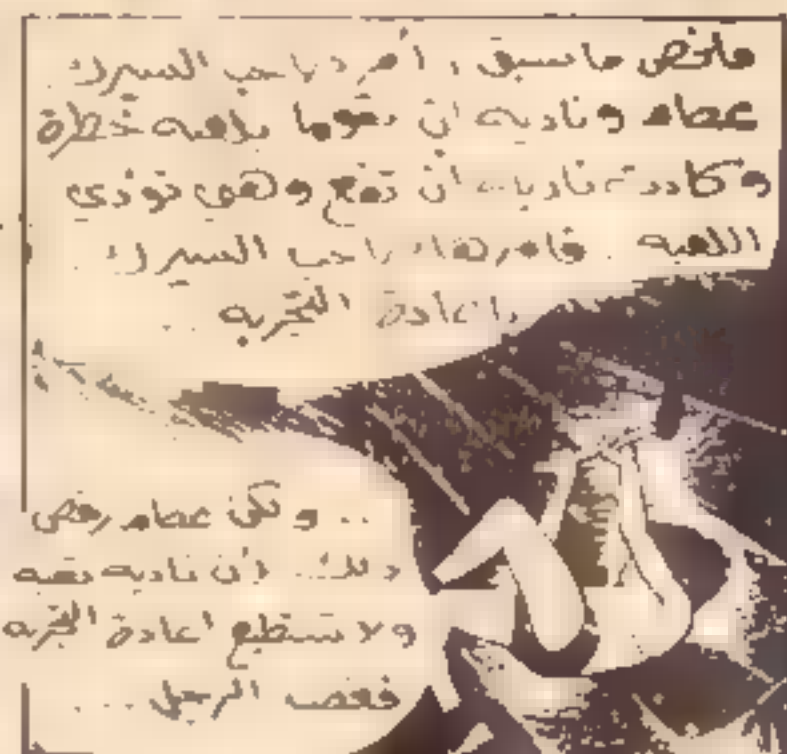 ملخص ما سبق : أمر صاحب السيرك
عصام ونادية ان يقوما بلعبة خطرة
وكادت نادية ان تقع وهى تؤدى
اللعبه . فأمرها صاحب السيرك
باعادة التجربه ..
.. ولكن عصام رفض
ذلك .. لأن ناديه تعبه
ولا تستطيع اعادة التجربه
فغضب الرجل ...